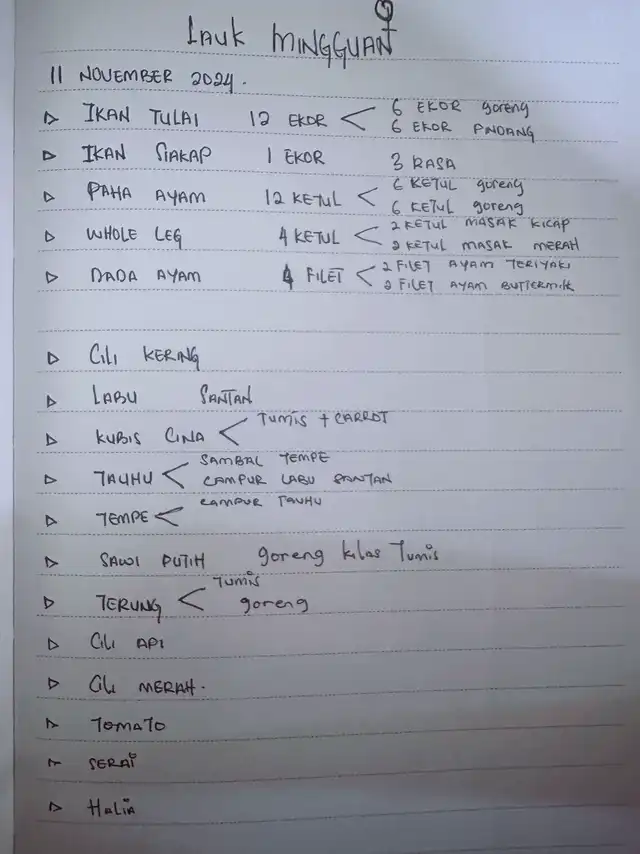 LAUK MINGGUAN
11 NOVEMBER 2024.
IKAN TULAI 12 EKOR < 6 EKOR goreng
6 EKOR PINDANG
IKAN SIAKAP 1 EKOR 3 RASA
PAHA AYAM 12 KETUL < 6 KETUL goreng
6 KETUL goreng
WHOLE LEG 4 KETUL < 2 KETUL MASAK KICAP
2 KETUL MASAK MERAH
DADA AYAM 4 FILET < 2 FILET AYAM TERIYAKI
2 FILET AYAM BUTTERMILK
CILI KERING
LABU SANTAN
KUBIS CINA < TUMIS + CARROT
TAUHU < SAMBAL TEMPE
CAMPUR LABU SANTAN
TEMPE < CAMPUR TAUHU
SAWI PUTIH goreng kilas Tumis
TERUNG < TUMIS
goreng
CILI API
CILI MERAH.
TOMATO
SERAI
HALIA